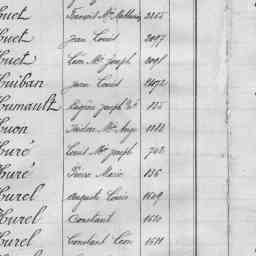 Huet François Mie Mathurin 2255
Huet Jean Louis 2097
Huet Léon Mie Joseph 2098
Huiban Jean Louis
Humault Eugène Joseph 125
Huon Isidore Mie Ange 1182
Huré Louis Mie Joseph 742
Huré Pierre Marie 136
Hurel Auguste Louis 1509
Hurel Constant 1510
Hurel Constant Léon 1511